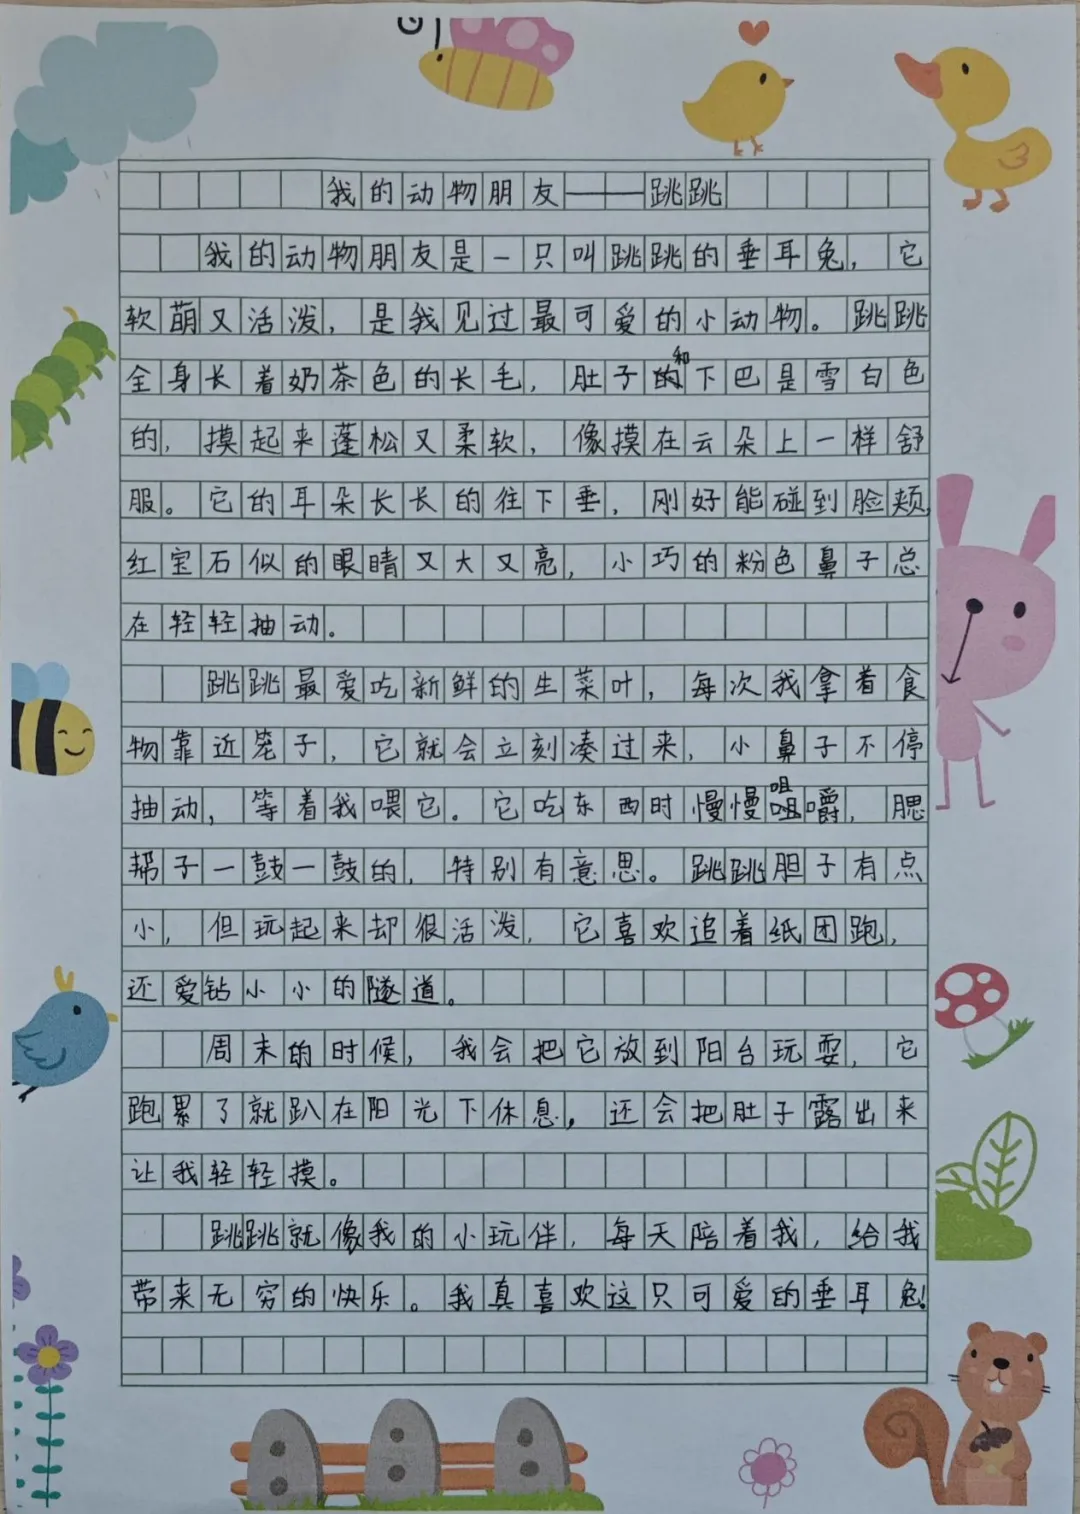 我的动物朋友——跳跳
我的动物朋友是一只叫跳跳的垂耳兔，它
软萌又活泼，是我见过最可爱的小动物。跳跳
全身长着奶茶色的长毛，肚子和下巴是雪白色
的，摸起来蓬松又柔软，像摸在云朵上一样舒
服。它的耳朵长长的往下垂，刚好能碰到脸颊，
红宝石似的眼睛又大又亮，小巧的粉色鼻子总
在轻轻抽动。
跳跳最爱吃新鲜的生菜叶，每次我拿着食
物靠近笼子，它就会立刻凑过来，小鼻子不停
抽动，等着我喂它。它吃东西时慢慢咀嚼，腮
帮子一鼓一鼓的，特别有意思。跳跳胆子有点
小，但玩起来却很活泼，它喜欢追着纸团跑，
还爱钻小小的隧道。
周末的时候，我会把它放到阳台玩耍，它
跑累了就趴在阳光下休息，还会把肚子露出来
让我轻轻摸。
跳跳就像我的小玩伴，每天陪着我，给我
带来无穷的快乐。我真喜欢这只可爱的垂耳兔！